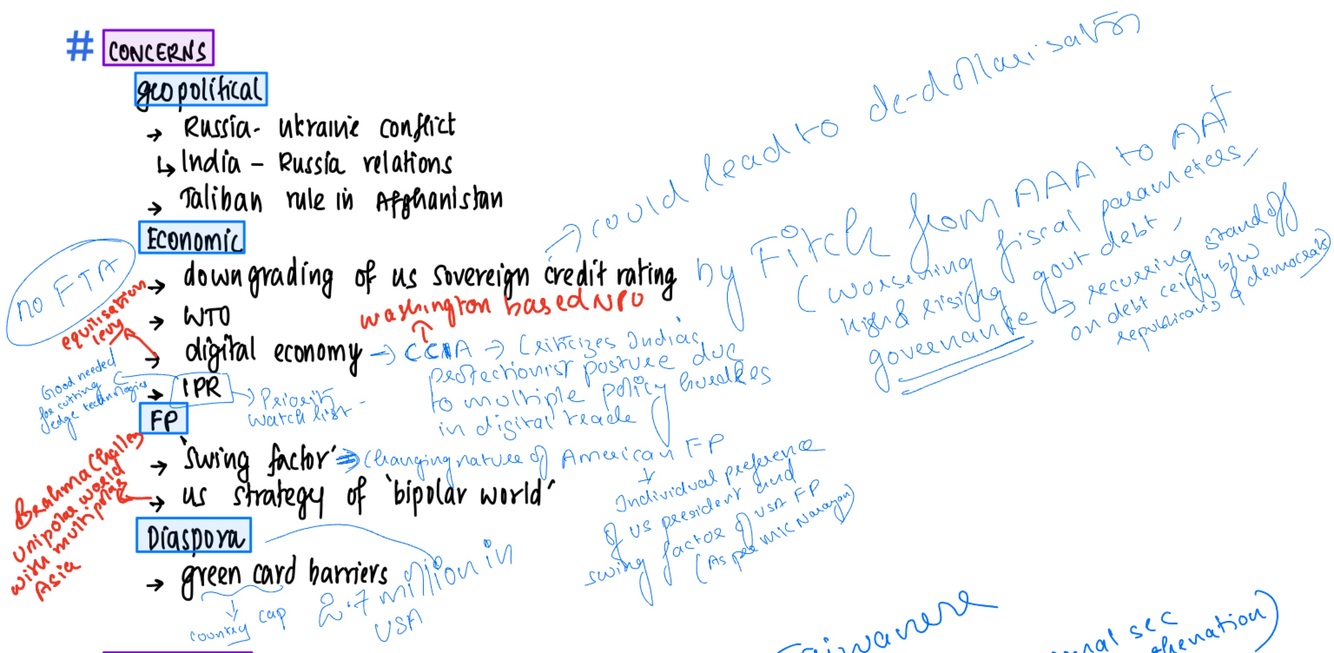 # CONCERNS
geopolitical
→ Russia- Ukraine conflict
↳ India - Russia relations
→ Taliban rule in Afghanistan
Economic
→ downgrading of us sovereign credit rating
→ could lead to de-dollarisation
by Fitch from AAA to AA+
(worsening fiscal parameters,
high & rising govt debt,
governance → recurring standoff
on debt ceiling b/w
republicans & democrats)
no FTA
→ WTO
equilisation
levy
→ digital economy → CCIA → Criticizes India's
washington based NPO
protectionist posture due
to multiple policy hurdles
in digital trade
→ IPR → Priority
watch list
Good needed
for cutting
edge technologies
FP
→ 'swing factor' ⇒ changing nature of American FP
Individual preference
of US president and
swing factor of USA FP
(As per MK Narayan)
→ us strategy of 'bipolar world'
Brahma Challey
unipolar world
with multipolar
Asia
Diaspora
2.7 million in
USA
→ green card barriers
country cap
Taiwanese
sec